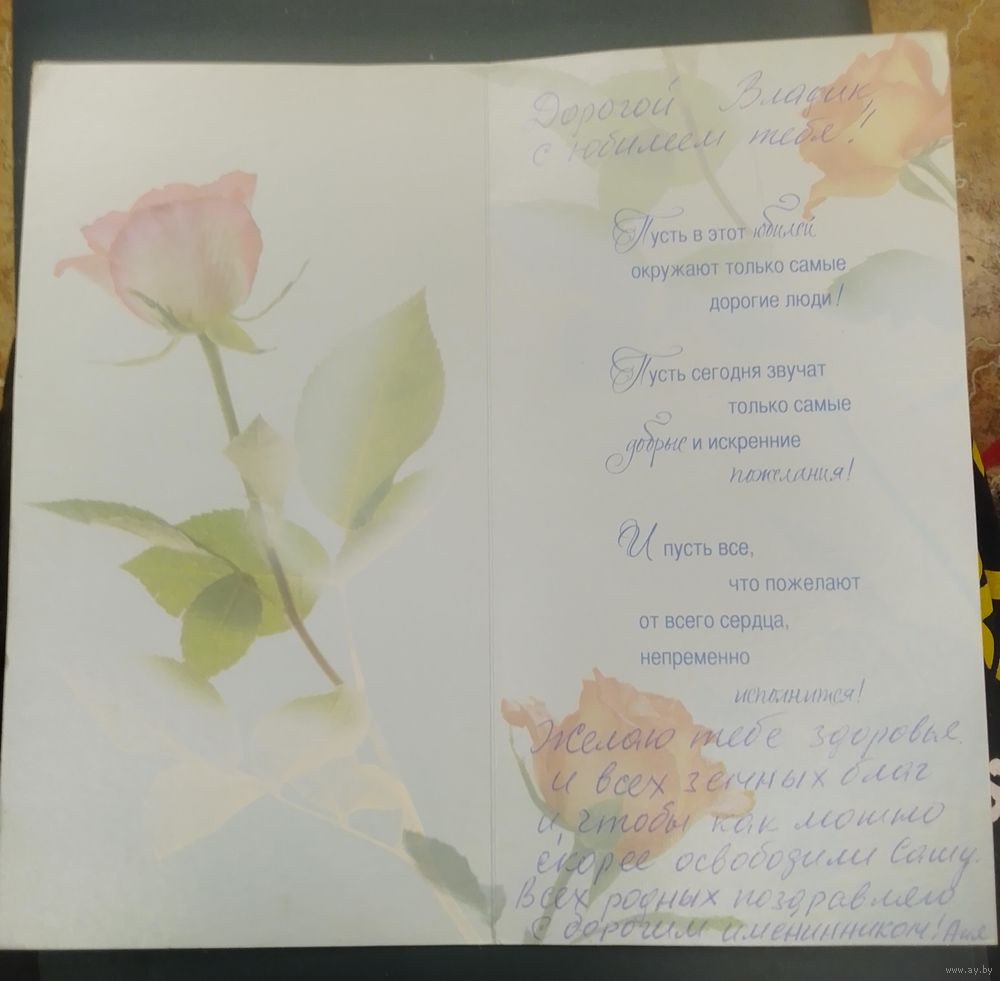 Дорогой Владик,
с юбилеем тебя!
Пусть в этот юбилей
окружают только самые
дорогие люди!
Пусть сегодня звучат
только самые
добрые и искренние
пожелания!
И пусть все,
что пожелают
от всего сердца,
непременно
исполнится!
Желаю тебе здоровья
и всех земных благ
и чтобы как можно
скорее освободили Сашу.
Всех родных поздравляю
с дорогим именинником! Аня
www.ay.by